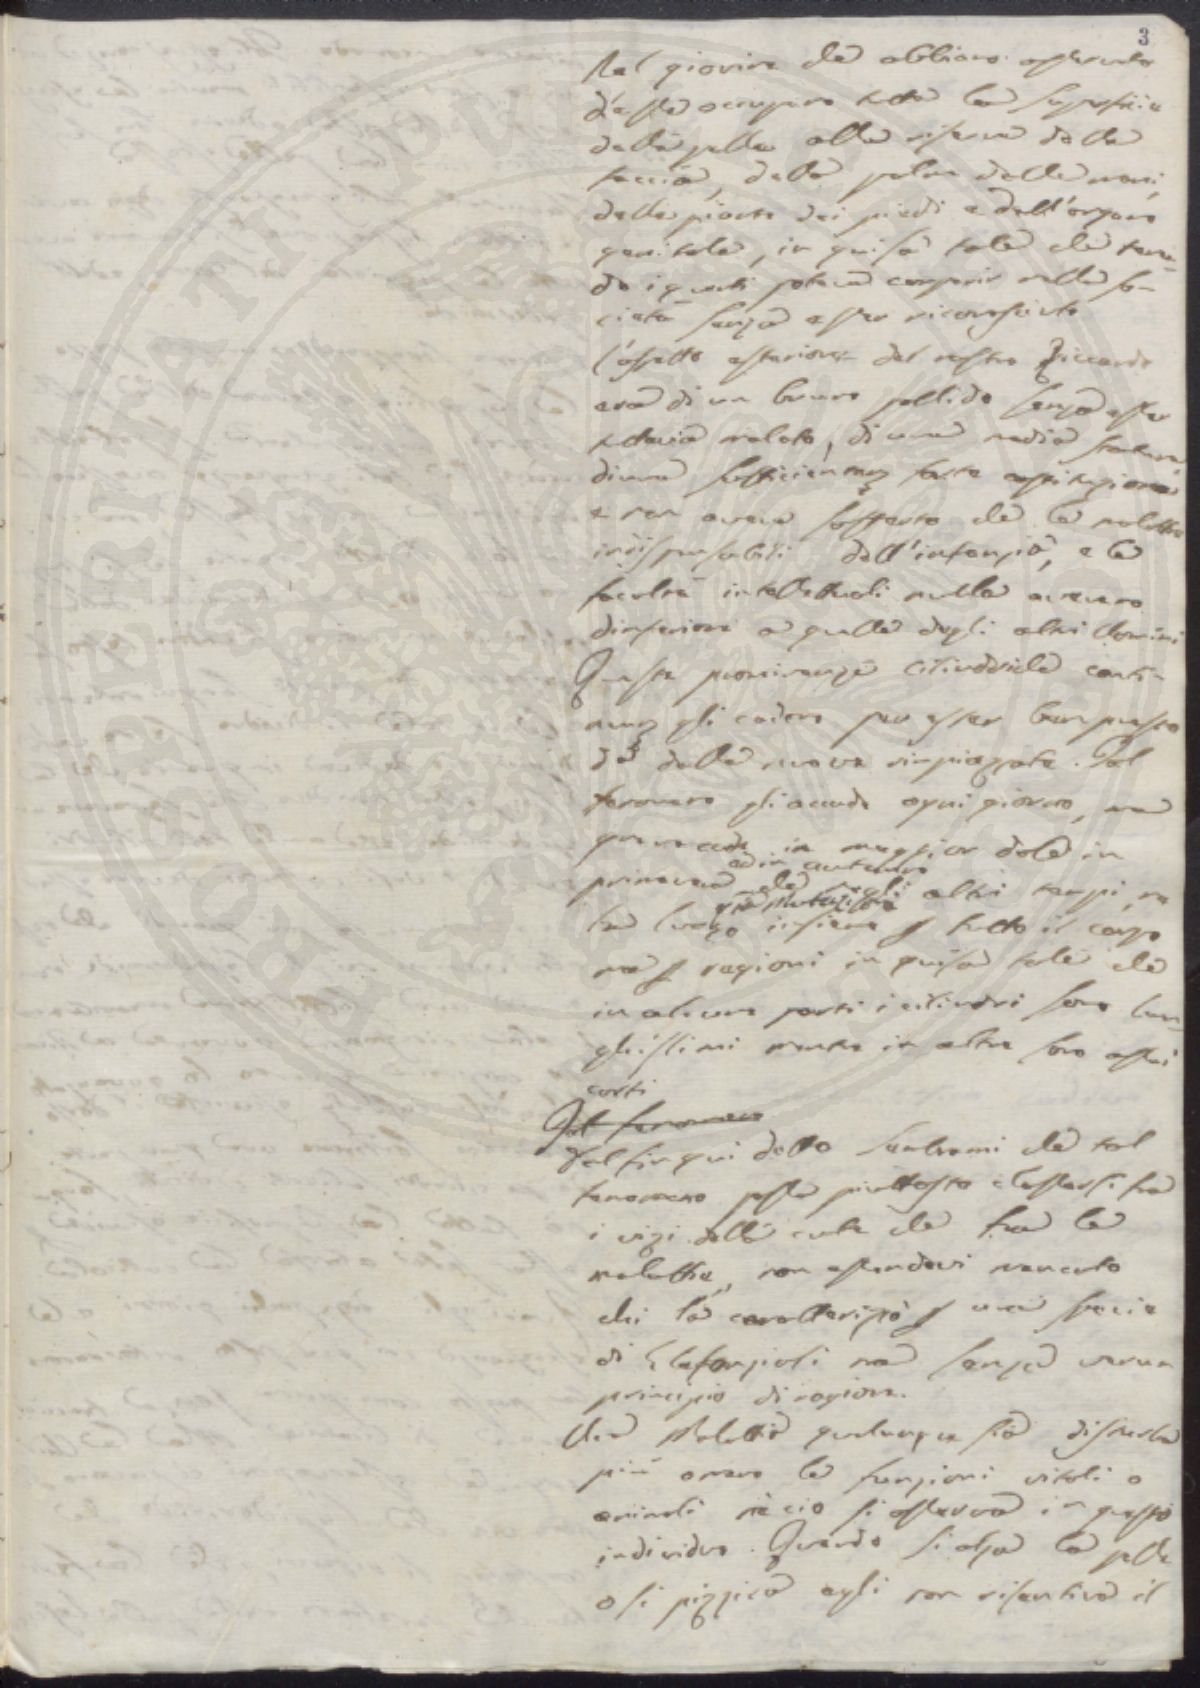 3
Nel giovine che abbiamo osservato
d'esse occupano tutta la superficie
della pelle alla riserva della
faccia, della palma delle mani,
delle piante dei piedi e dell'organo
genitale, in guisa tale che tenen-
do i guanti poteva comparir nella so-
cietà senza esser riconosciuto
L'aspetto esteriore del nostro Riccardo
era di un bruno pallido senza esser
tuttavia malato, di una media statura
di una sufficientem forte costituzione
e non aveva sofferto che le malattie
indispensabili dell'infanzia, e le
facoltà intellettuali nulla avevano
d'inferiore a quelle degli altri Uomini
Queste prominenze cilindriche conti-
nuam gli cadono per esser ben presto
da delle nuove rimpiazzate. Tal
fenomeno gli accade ogni giorno, ma
in maggior dose in
primavera ed in autunno che negli altri tempi, 
ha luogo insieme p tutto il corpo
ma p regioni in guisa tale che
in alcune parti i cilindri sono lun-
ghissimi mentre in altre sono assai
corti
Tal fenomeno
Dal fin qui detto sembrami che tal
fenomeno possa piuttosto classarsi fra
i vizi della cute che fra le
malattie, non essendovi mancato
chi la caratterizzò p una specie
di Elefanziasi ma senza verun
principio di ragione.
Una Malattia qualunque sia disturba
più o meno le funzioni vitali o
animali nè ciò si osserva in questo
individuo. Quando si alza la pelle
o si pizzica egli non risentiva il